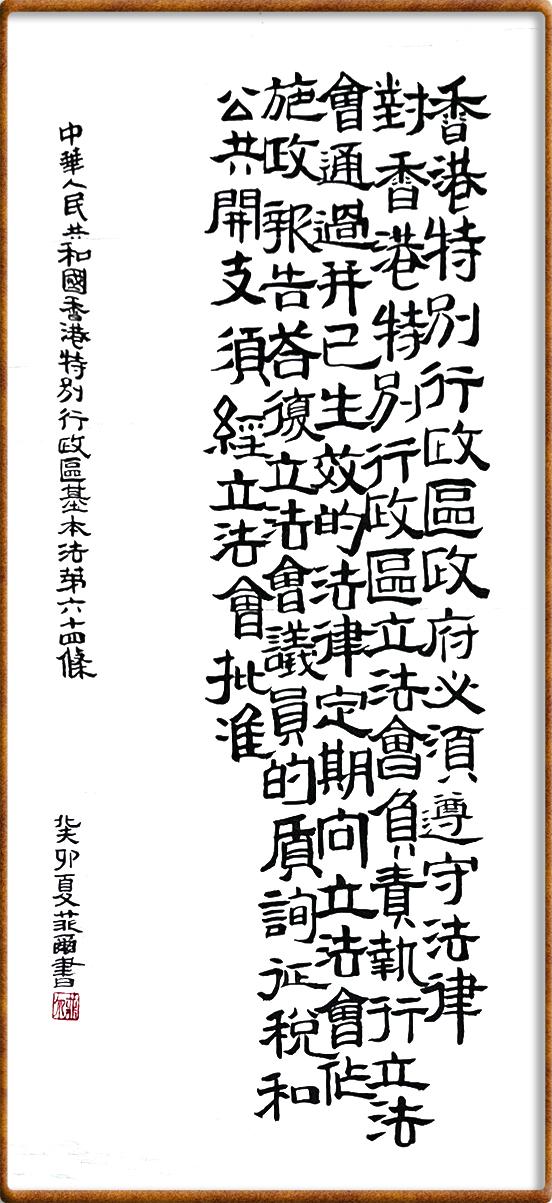 香港特別行政區政府必須遵守法律
對香港特別行政區立法會負責執行立法
會通過并已生效的法律定期向立法會作
施政報告荅復立法會議員的質詢征稅和
公共開支須經立法會批准
中華人民共和國香港特別行政區基本法第六十四條
癸卯夏菲爾書